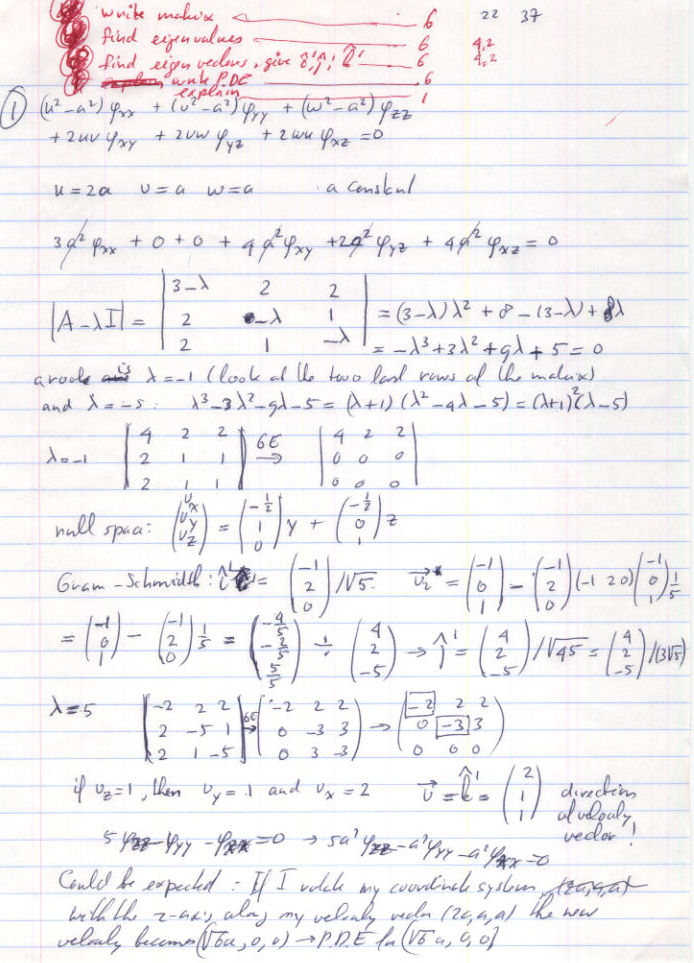 write matrix 6 22 37
find eigenvalues 6 4,2
find eigen vectors, give î', ĵ', k̂' 6 4,2
write P.D.E 6
explain 1
① (u²-a²) φxx + (v²-a²) φyy + (w²-a²) φzz
+ 2uv φxy + 2vw φyz + 2wu φxz = 0
u = 2a v = a w = a a constant
3a² φxx + 0 + 0 + 4a² φxy + 2a² φyz + 4a² φxz = 0
|A - λI| = | 3-λ 2 2 | = (3-λ)λ² + 8 - (3-λ) + 8λ
| 2 -λ 1 |
| 2 1 -λ | = -λ³ + 3λ² + 9λ + 5 = 0
a root is λ = -1 (look at the two last rows of the matrix)
and λ = -5 : λ³ - 3λ² - 9λ - 5 = (λ+1)(λ² - 4λ - 5) = (λ+1)²(λ-5)
λ = -1 | 4 2 2 | GE → | 4 2 2 |
| 2 1 1 | | 0 0 0 |
| 2 1 1 | | 0 0 0 |
null space: (vx vy vz) = (-1/2 1 0) y + (-1/2 0 1) z
Gram-Schmidt: î' = (-1 2 0) /√5. v₂* = (-1 0 1) - (-1 2 0) (-1 2 0) (-1 0 1) 1/5
= (-1 0 1) - (-1 2 0) 1/5 = (-4/5 -2/5 5/5) ÷ (4 2 -5) → ĵ' = (4 2 -5) /√45 = (4 2 -5) /(3√5)
λ = 5 | -2 2 2 | GE → ( -2 2 2 ) → ( -2 2 2 )
| 2 -5 1 | ( 0 -3 3 ) ( 0 -3 3 )
| 2 1 -5 | ( 0 3 -3 ) ( 0 0 0 )
if vz = 1, then vy = 1 and vx = 2 v = k̂' = (2 1 1) direction
of velocity
vector!
5 φzz - φyy - φxx = 0 → 5a² φzz - a² φyy - a² φxx = 0
Could be expected : If I rotate my coordinate system (2a,a,a)
with the z-axis along my velocity vector (2a,a,a) the new
velocity becomes (√6a, 0, 0) → P.D.E for (√6 a, 0, 0)